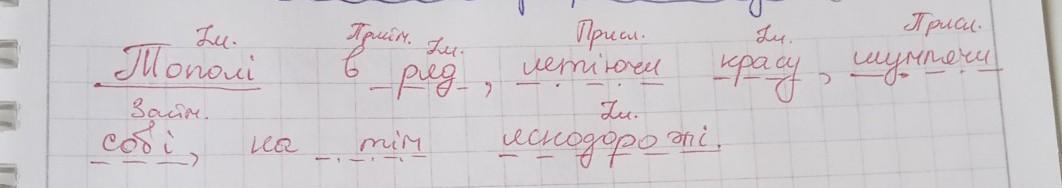 Ім. Прийм. Ім. Присл. Ім. Присл.
Тополі в ряд, метіючи красу, шумлячи
Займ. Ім.
собі, на тім исподорожі.